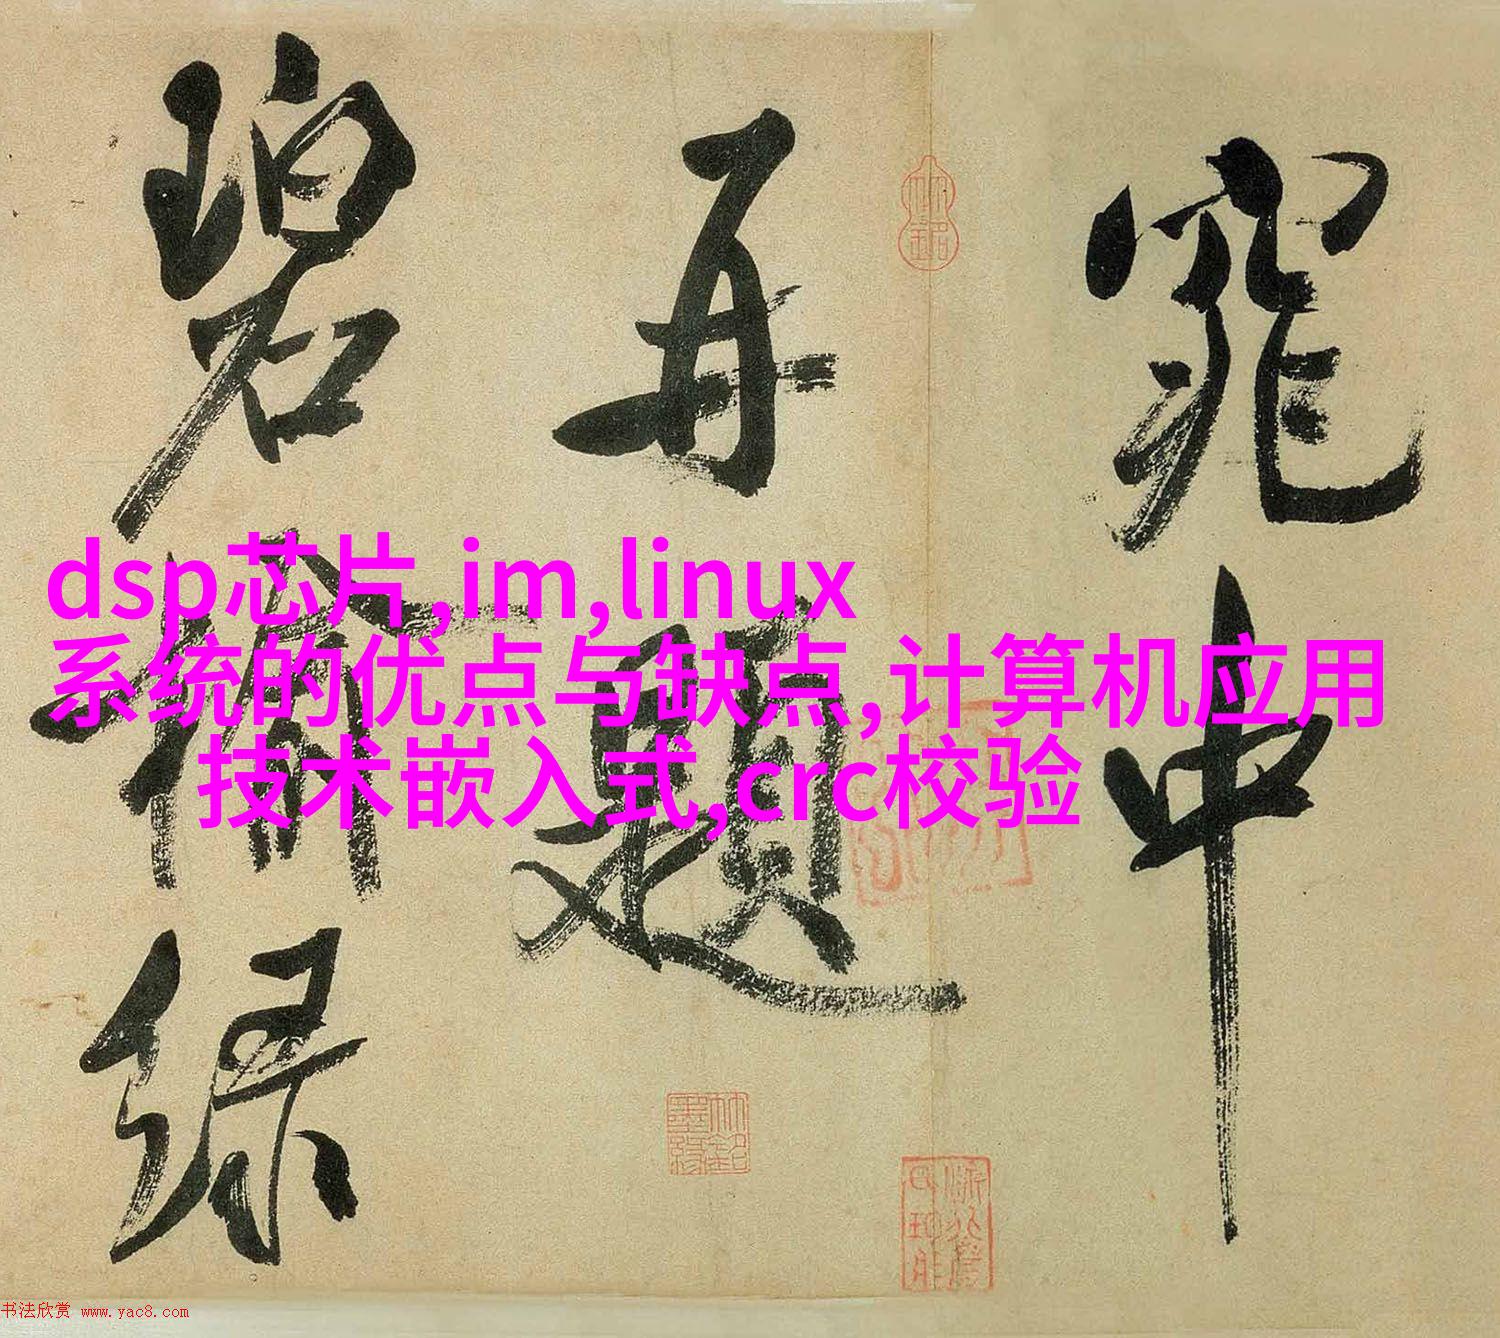 窕中
再题
碧榆绿
dsp芯片,im,linux
系统的优点与缺点,计算机应用
技术嵌入式,crc校验
书法欣赏 www.yac8.com